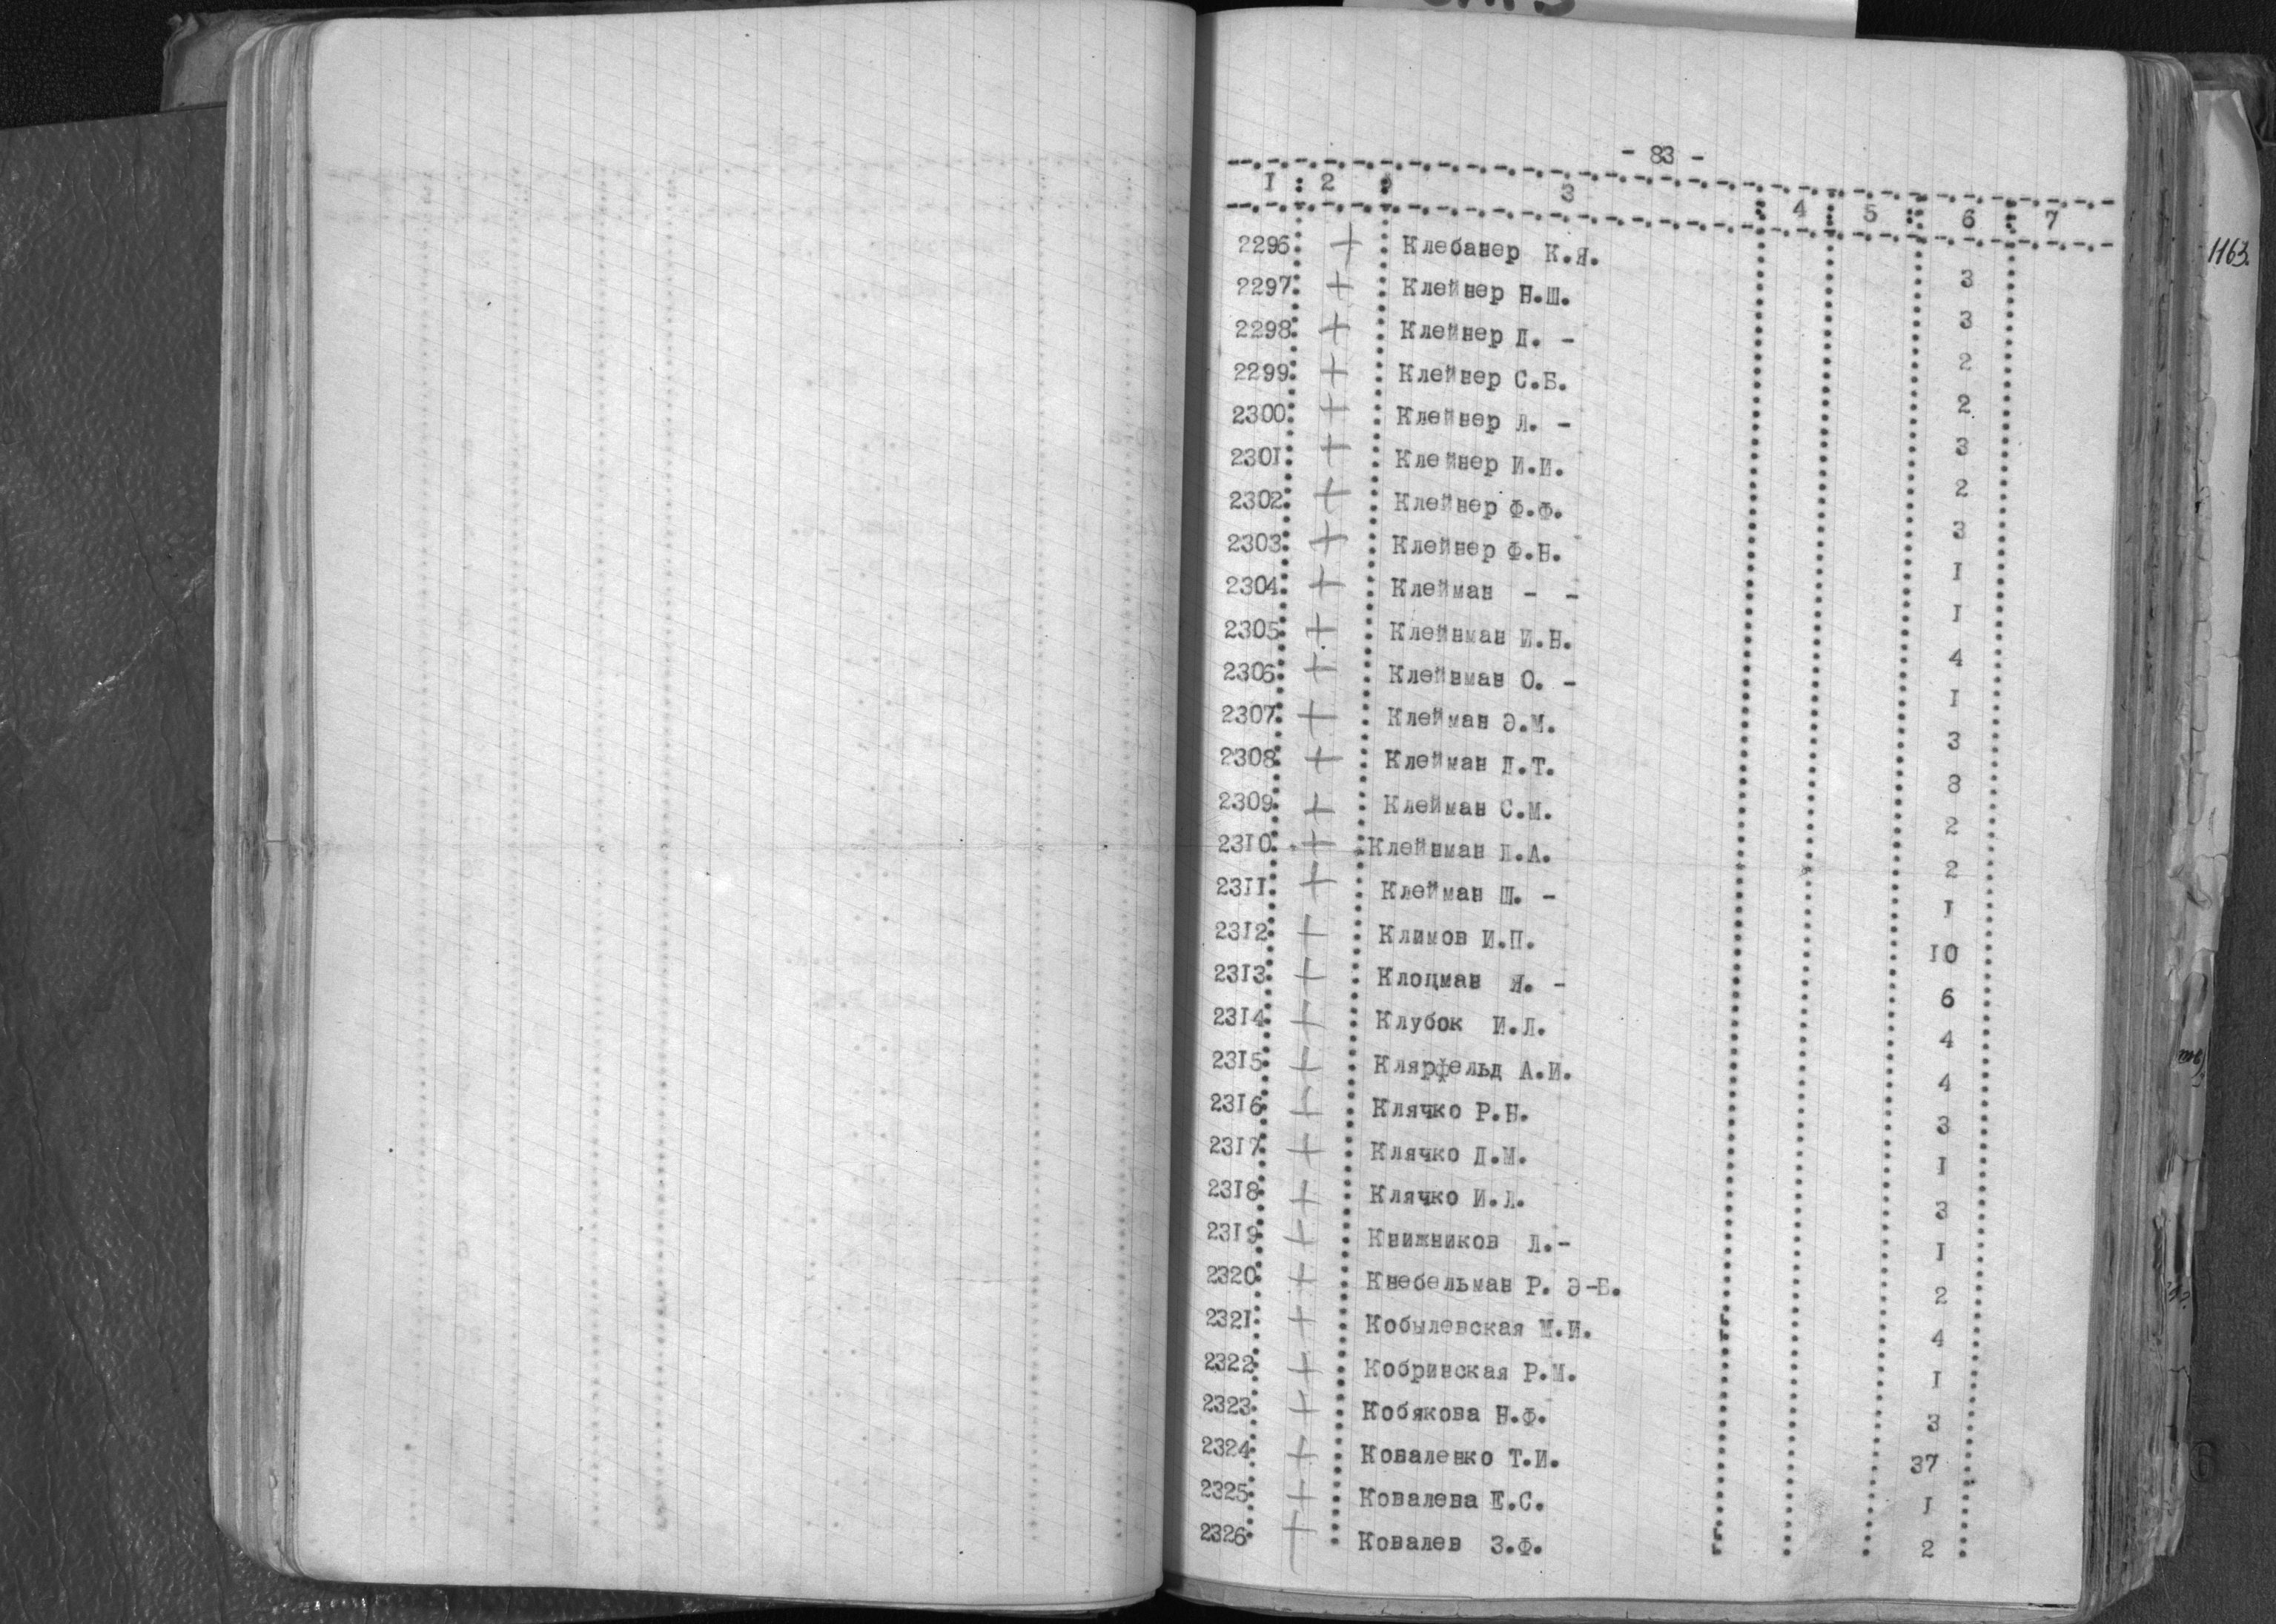 - 83 -
I : 2 : 3 : 4 : 5 : 6 : 7
1163.
2296 + Клебанер К.Я. 3
2297 + Клейнер Н.Ш. 3
2298 + Клейнер Д. - 2
2299 + Клейнер С.Б. 2
2300 + Клейнер Л. - 3
230I + Клейнер И.И. 2
2302 + Клейнер Ф.Ф. 3
2303 + Клейнер Ф.Н. I
2304 + Клейман - - I
2305 + Клейнман И.Н. 4
2306 + Клейнман О. - I
2307 + Клейман Э.М. 3
2308 + Клейман Д.Т. 8
2309 + Клейман С.М. 2
23I0 + Клейнман Д.А. 2
23II + Клейман Ш. - I
23I2 + Климов И.П. I0
23I3 + Клоцман Я. - 6
23I4 + Клубок И.Л. 4
23I5 + Клярфельд А.И. 4
23I6 + Клячко Р.Н. 3
23I7 + Клячко Д.М. I
23I8 + Клячко И.Л. 3
23I9 + Книжников Л.- I
2320 + Кнебельман Р. Э-Б. 2
232I + Кобылевская М.И. 4
2322 + Кобринская Р.М. I
2323 + Кобякова Н.Ф. 3
2324 + Коваленко Т.И. 37
2325 + Ковалева Е.С. I
2326 + Ковалев З.Ф. 2